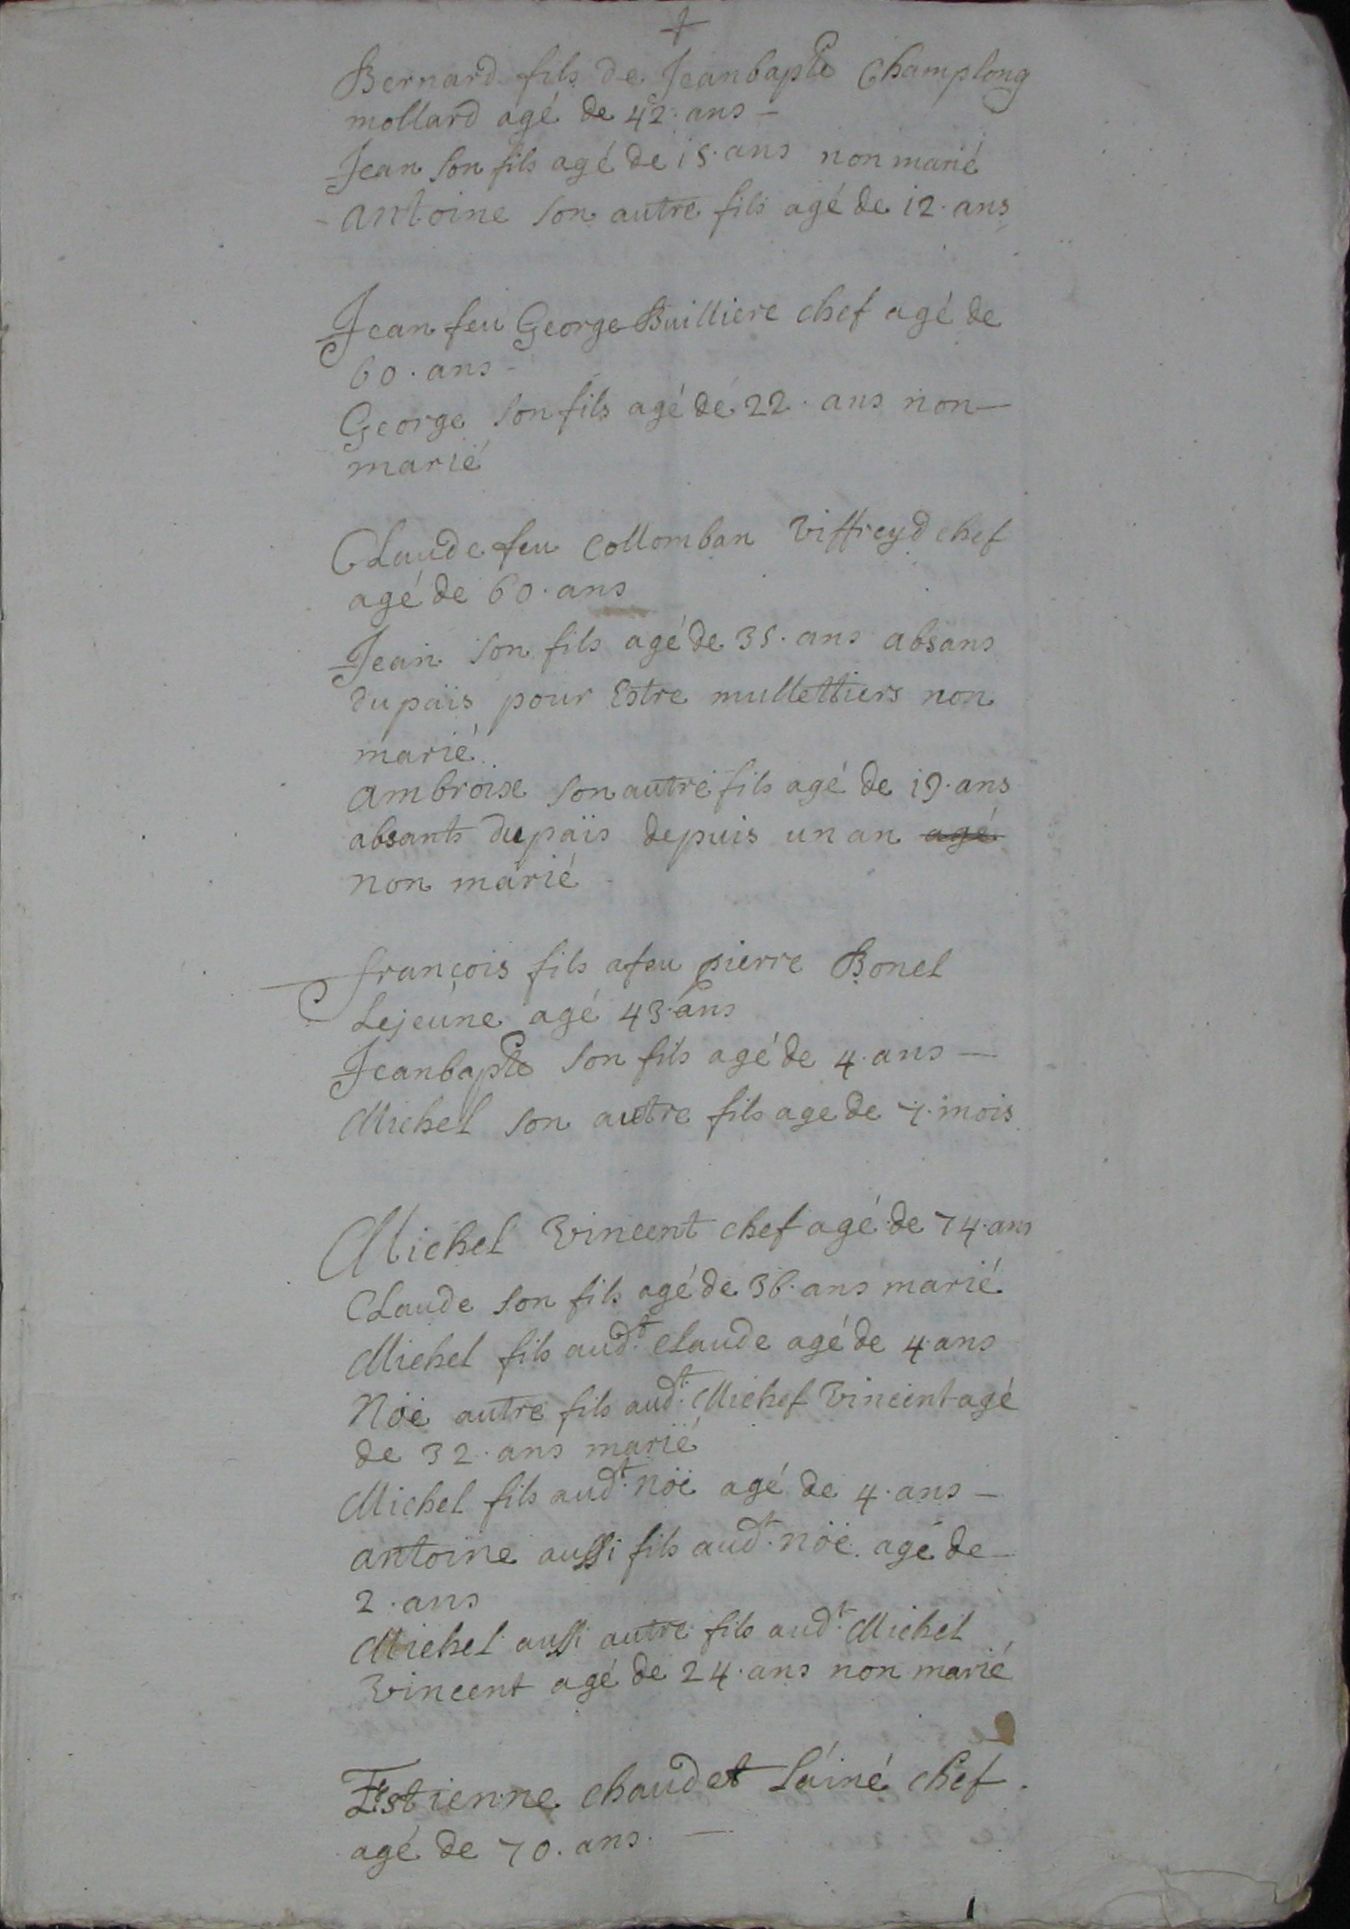 Bernard fils de Jeanbapte Champlong
mollard agé de 42. ans –
Jean son fils agé de 15. ans non marié
- antoine son autre fils agé de 12. ans
Jean feu George Builliere chef agé de
60. ans -
George son fils agé de 22. ans non –
marié
Claude feu Collomban Viffreyd chef
agé de 60. ans
Jean son fils agé de 35. ans absans
du païs pour Estre mullettiers non
marié.
ambroise son autre fils agé de 19. ans
absants du païs depuis un an agé
non marié
françois fils afeu pierre Bonel
Lejeune agé 43. ans
Jeanbapte son fils agé de 4. ans –
Michel son autre fils age de 7. mois
Michel Vincent chef agé de 74. ans
Claude son fils agé de 36. ans marié
Michel fils audt. Claude agé de 4 ans
Nöe autre fils audt. Michel Vincent agé
de 32. ans marié
Michel fils audt. nöe agé de 4. ans –
antoine aussi fils audt. nöe. agé de –
2. ans
Michel aussi autre fils audt. Michel
Vincent agé de 24. ans non marié
Estienne chaudet láiné chef.
agé de 70. ans. –